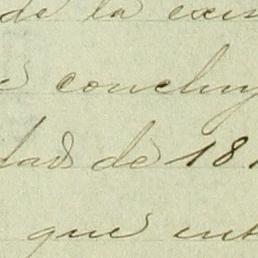 de la exis
e concluy
dad de 18
que ent